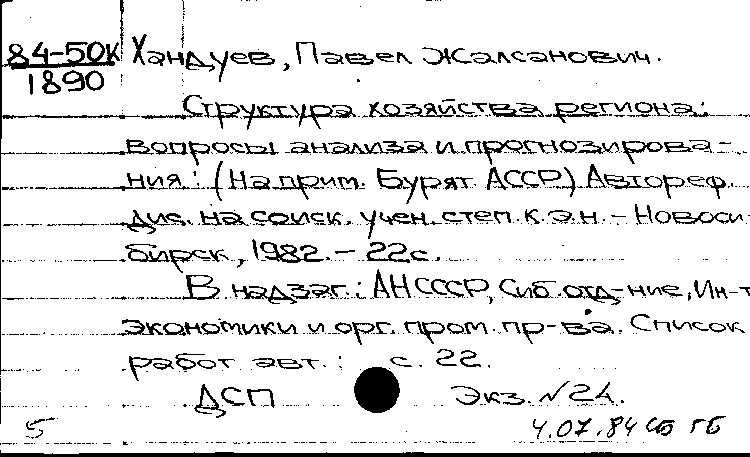 84-50К Хандуев, Павел Жалсанович.
1890
Структура хозяйства региона:
вопросы анализа и прогнозирова-
ния: (На прим. Бурят АССР) Автореф.
дис. на соиск. учен. степ. к.э.н. - Новоси-
бирск, 1982. - 22с.
В надзаг.: АН СССР, Сиб. отд-ние, Ин-т
экономики и орг. пром. пр-ва. Список
работ авт.: с. 22.
ДСП Экз. №24.
5 4.07.84 ГБ